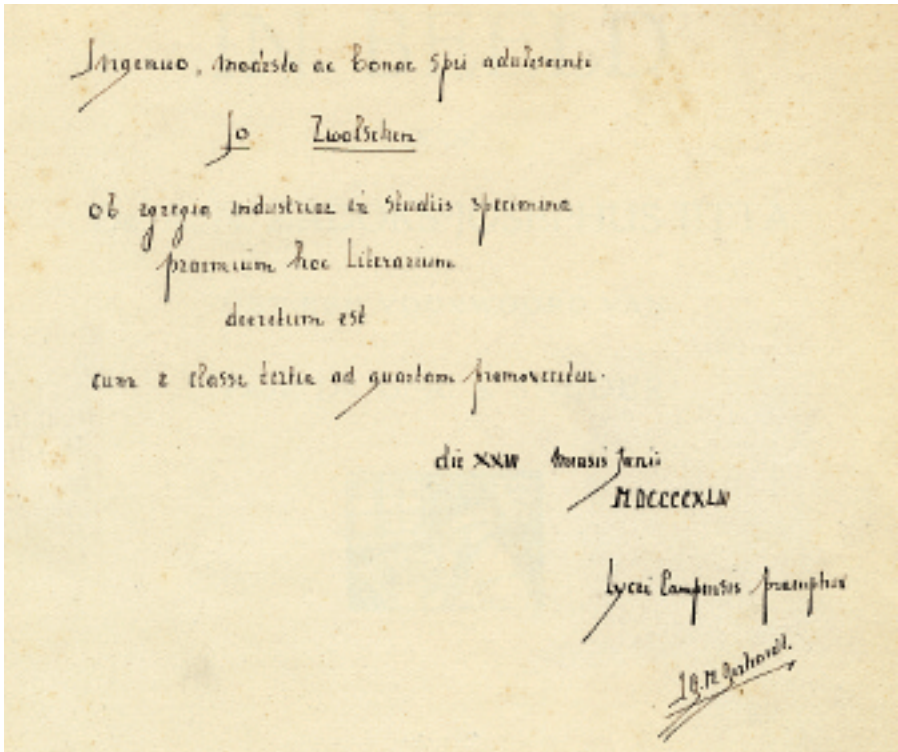 Ingenuo, modesto ac bonae spei adulescenti
Jo Zwolschen
ob egregia industriae in studiis specimina
praemium hoc literarium
decretum est
cum e classe tertia ad quartam promoveretur.
die mensis Junii
Lycei Campensis praeceptor